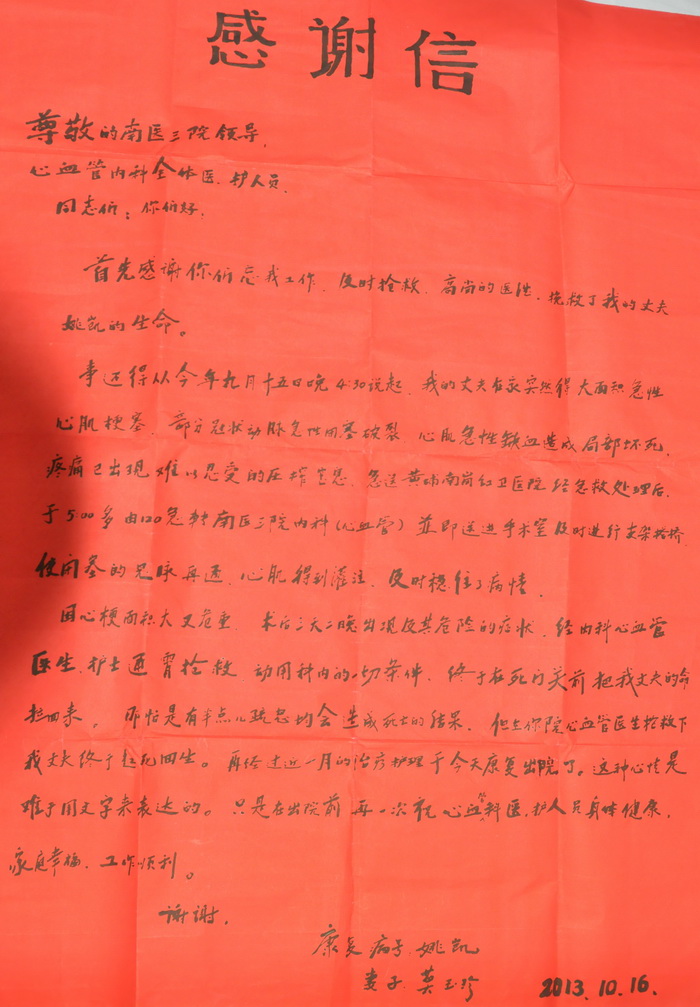 感谢信
尊敬的南医三院领导，
心血管内科全体医、护人员，
同志们：你们好，
首先感谢你们忘我工作、及时抢救、高尚的医性，挽救了我的丈夫
姚凯的生命。
事还得从今年九月十五日晚4:30说起，我的丈夫在家突然得大面积急性
心肌梗塞，部分冠状动脉急性闭塞破裂 心肌急性缺血造成局部坏死，
疼痛已出现难以忍受的压榨 急送黄埔南岗红卫医院经急救处理后，
于500多由120急转南医三院内科（心血管）並即送进手术室及时进行支架搭桥
使闭塞的兄脉再通、心肌得到灌注、及时稳住了病情，
因心梗面积大又危重，术后三天二晚出现及其危险的症状，经内科心血管
医生、护士通宵抢救、动用科内的一切条件，终于在死门关前把我丈夫的命
拉回来，那怕是有半点儿疏忽均会造成死亡的结果，但在你院心血管医生抢救下
我丈夫终于起死回生。再经过近一月的治疗护理于今天康复出院了。这种心情是
难于用文字来表达的。只是在出院前再一次祝心血管科医、护人员身体健康，
家庭幸福、工作顺利。
谢谢，
康复病号 姚凯
妻子 莫玉珍 2013.10.16.